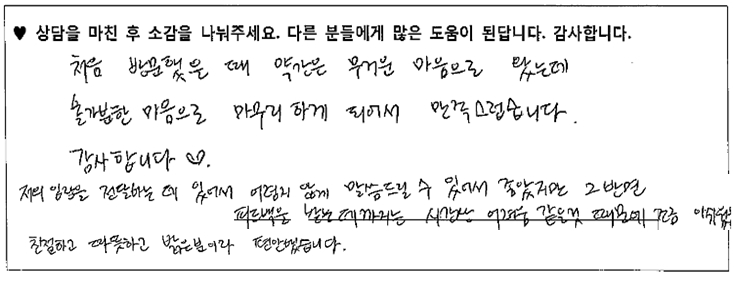 ♥ 상담을 마친 후 소감을 나눠주세요. 다른 분들에게 많은 도움이 된답니다. 감사합니다.
처음 방문했을 때 약간은 무거운 마음으로 왔는데
홀가분한 마음으로 마무리 하게 되어서 만족스럽습니다.
감사합니다 ♡.
저의 입장을 전달하는 데 있어서 어렵지 않게 말씀드릴 수 있어서 좋았지만 그 반면
피드백을 받는 데까지는 시간상 어려움 같은것 때문에 조금
친절하고 따뜻하고 밝은분이라 편안했습니다.